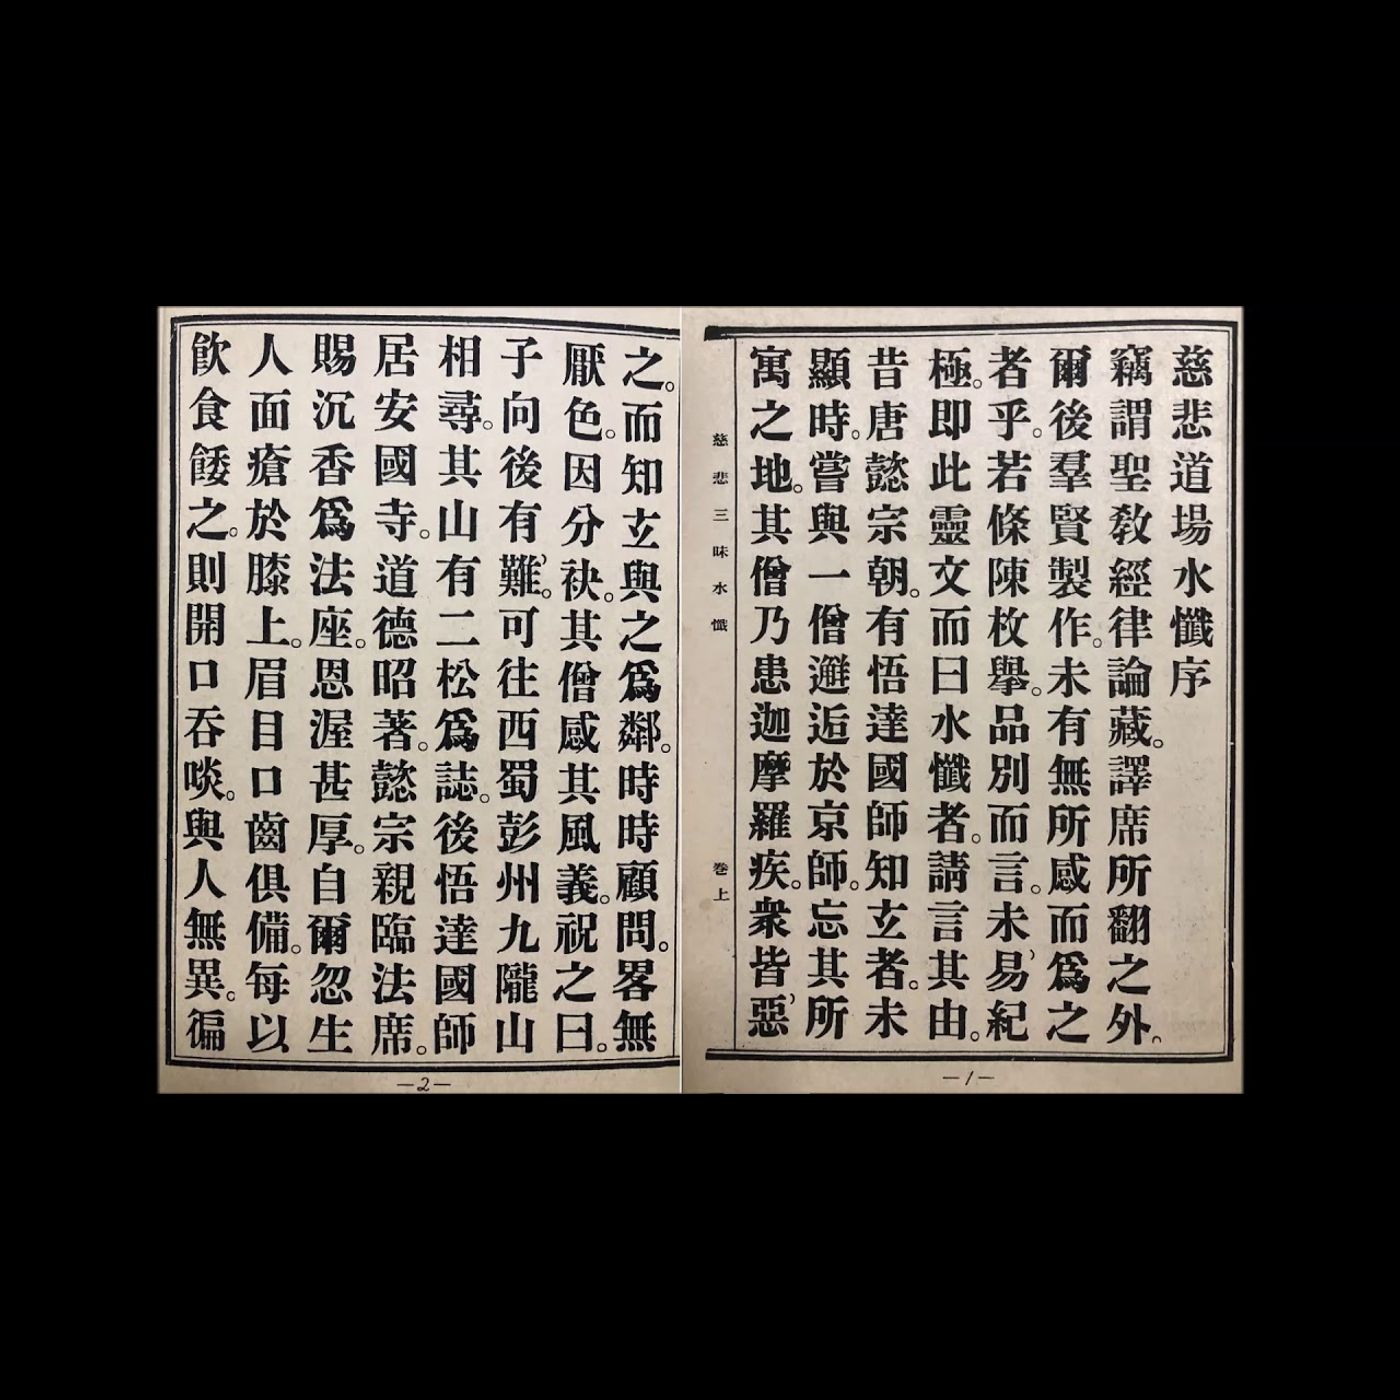 慈悲道場水懺序
竊謂聖教經律論藏。譯席所翻之外。
爾後羣賢製作。未有無所感而爲之
者乎。若條陳枚擧。品別而言。未易紀
極。即此靈文而曰水懺者。請言其由。
昔唐懿宗朝。有悟達國師知玄者。未
顯時。嘗與一僧邂逅於京師。忘其所
寓之地。其僧乃患迦摩羅疾。衆皆惡
慈悲三昧水懺 卷上
—1—
之。而知玄與之爲鄰。時時顧問。畧無
厭色。因分袂。其僧感其風義。祝之曰。
子向後有難。可往西蜀彭州九隴山
相尋。其山有二松爲誌。後悟達國師
居安國寺。道德昭著。懿宗親臨法席。
賜沉香爲法座。恩渥甚厚。自爾忽生
人面瘡於膝上。眉目口齒俱備。每以
飲食餧之。則開口吞啖。與人無異。徧
—2—